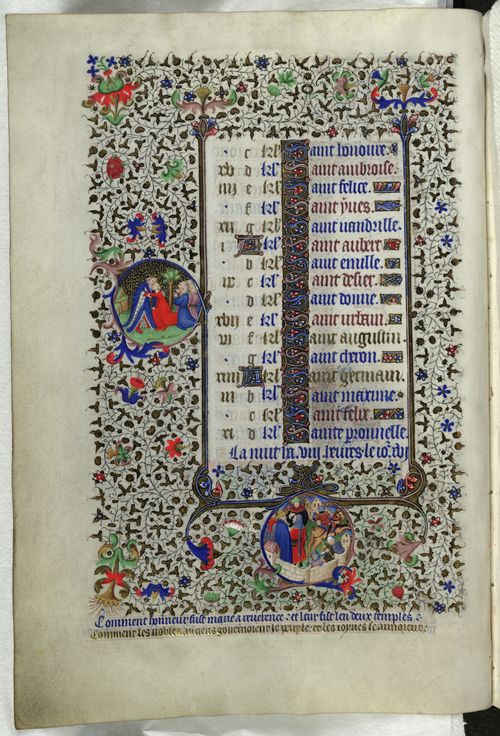 c kl' Saint honoure.
xvi d kl' Saint ambroise.
v e kl' Saint felice.
f kl' Saint yues.
xiii g kl' Saint uandrille.
ii A kl' Saint aubert.
b kl' Saint emille.
x c kl' Saint desier.
d kl' Saint donne.
xviii e kl' Saint urbain.
vi f kl' Saint augustin.
g kl' Saint cheron.
A kl' Saint germain.
iii b kl' Saint maxime.
c kl' Saint felix.
xi d kl' Sainte peronnelle.
La nuit ha. viij. heures. le io. xvj
Comment honneur fust marie a reuerence : et leur fist len deux temples :
Comment les nobles anciens gouuernoient le peuple : et les ioynes le armoient :